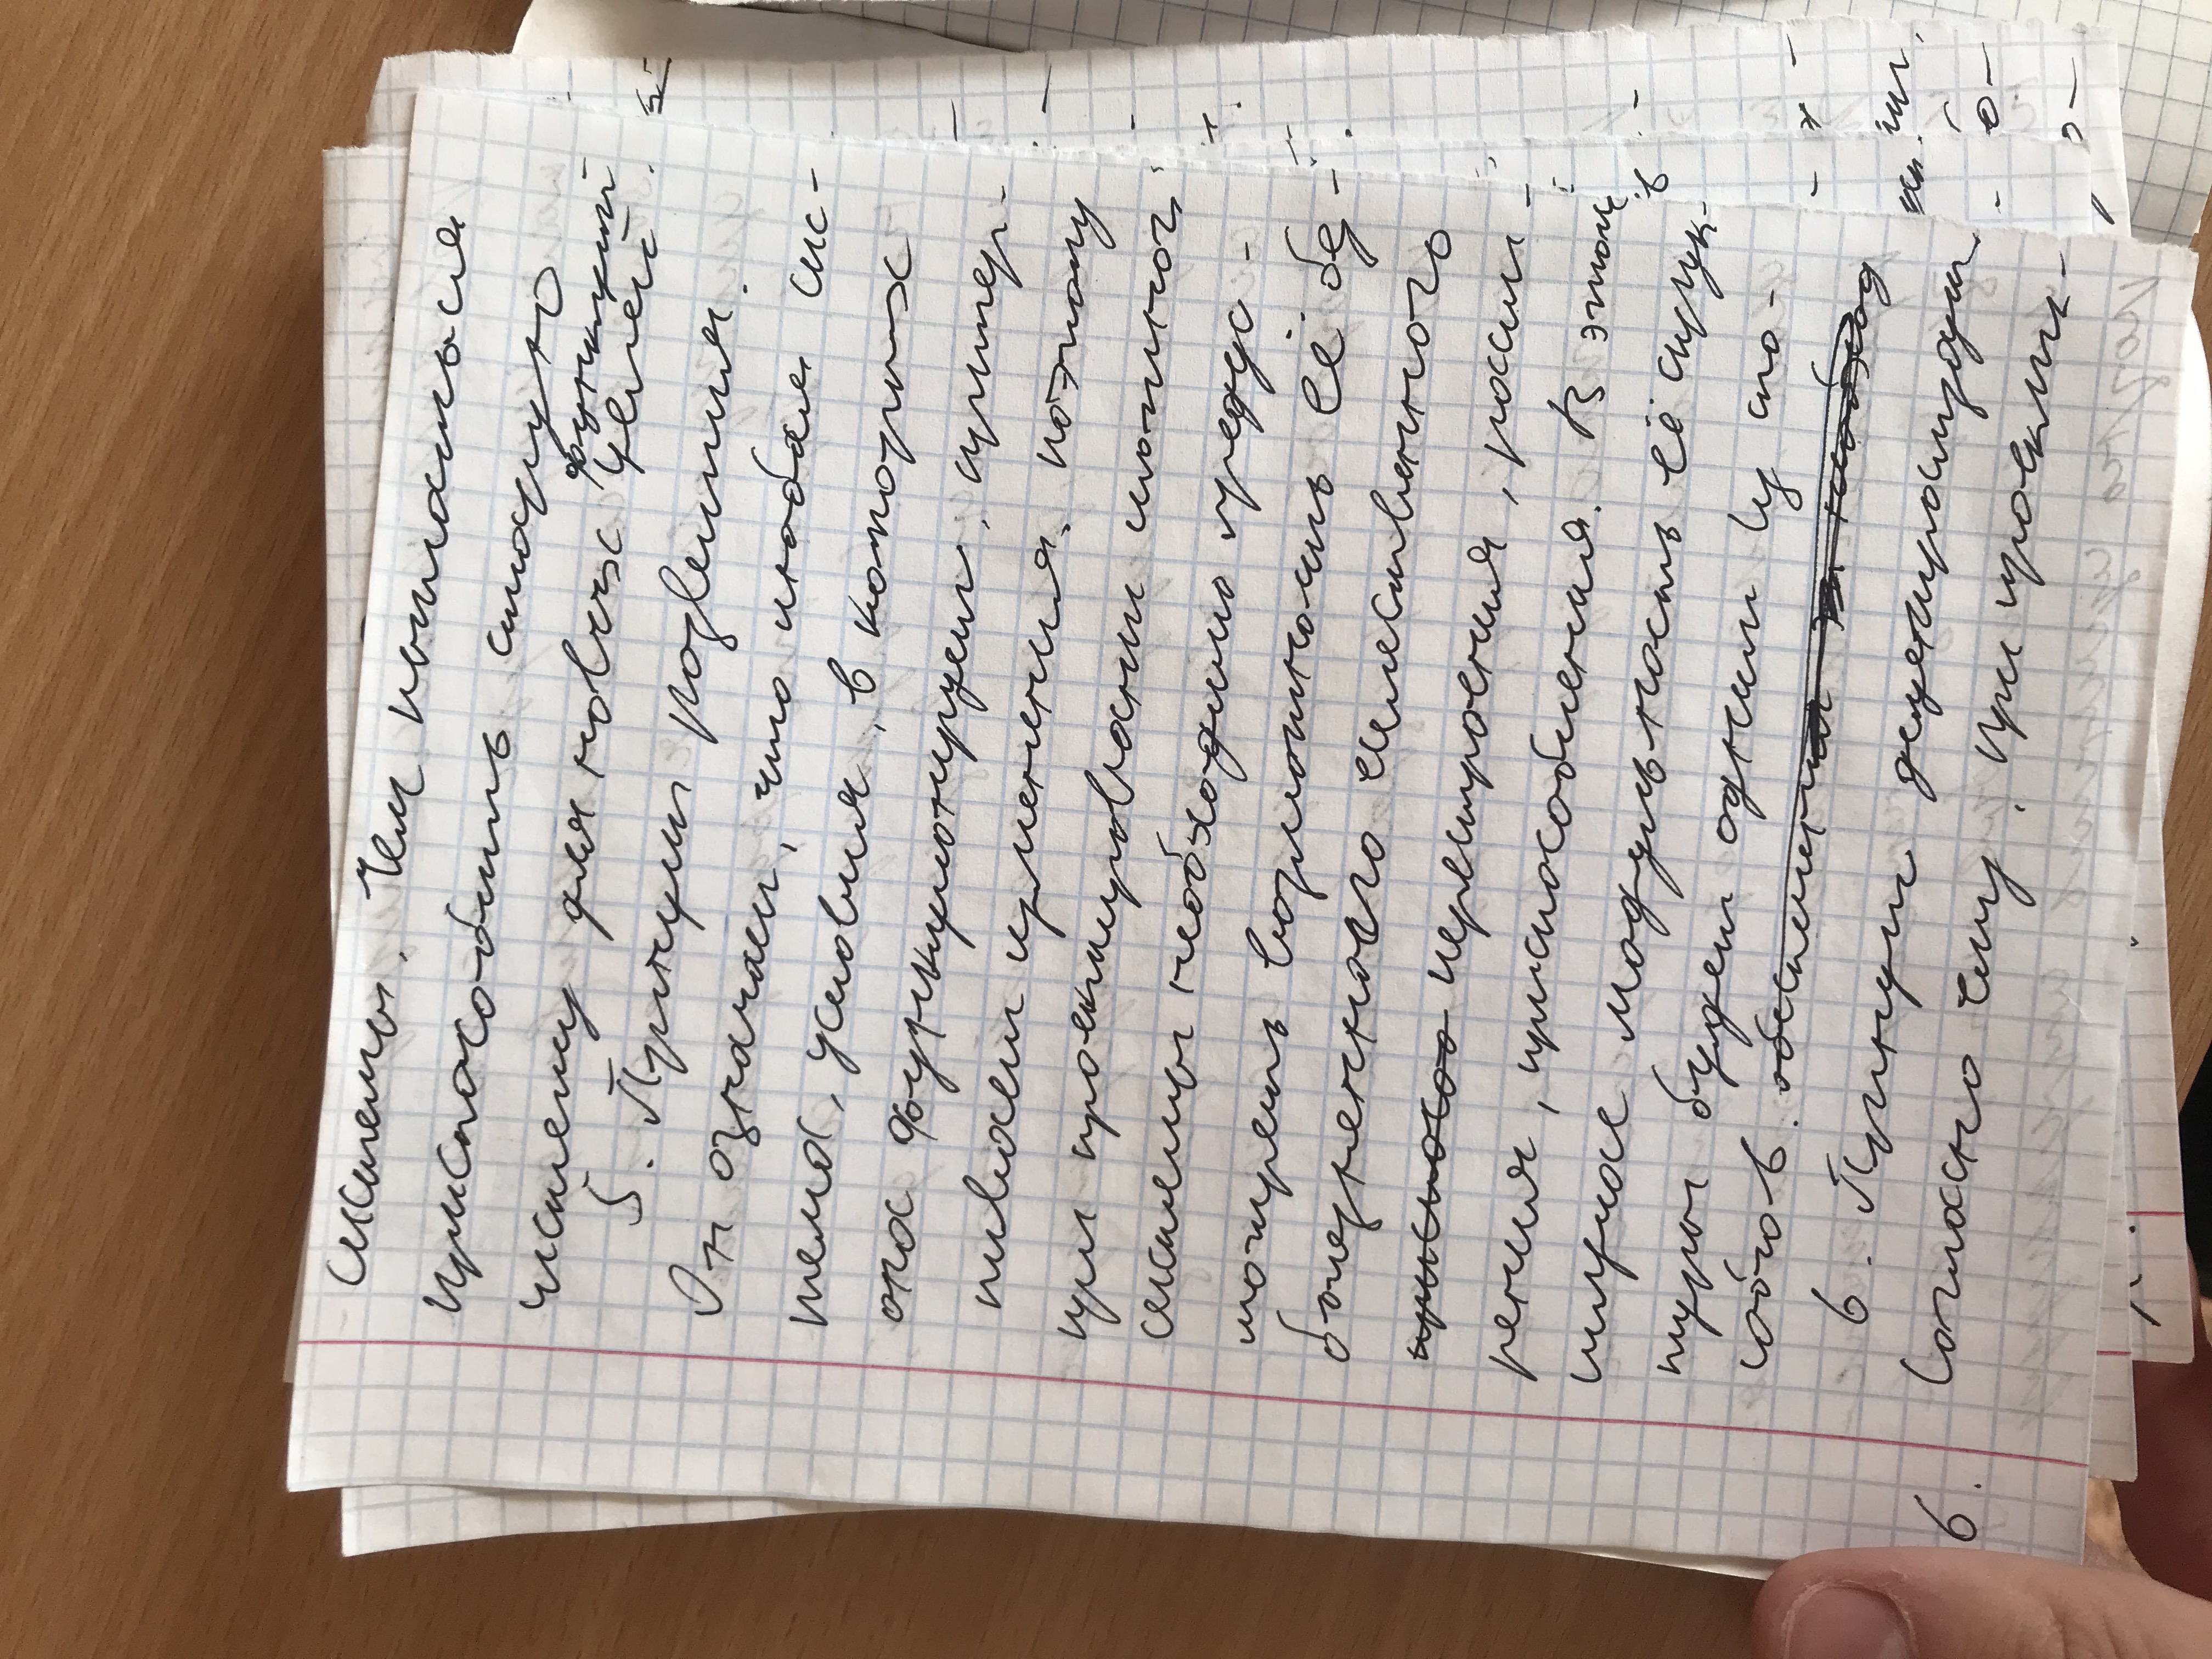 системы. Чем пытаться
приспособить старую
систему для новых функций
целей.
5. Принцип развития.
Он означает, что любая сис-
тема, условия, в которых
она функционирует, притер-
пивает изменения. поэтому
при проектировании сложной
системы необходимо предус-
мотреть возможность её без-
болезненного
перестроения, расши-
рения, приспособления. В этом
случае модульность её струк-
туры будет одним из спо-
собов.
6. Принцип децентрализации.
6. Согласно чему, при проекти-